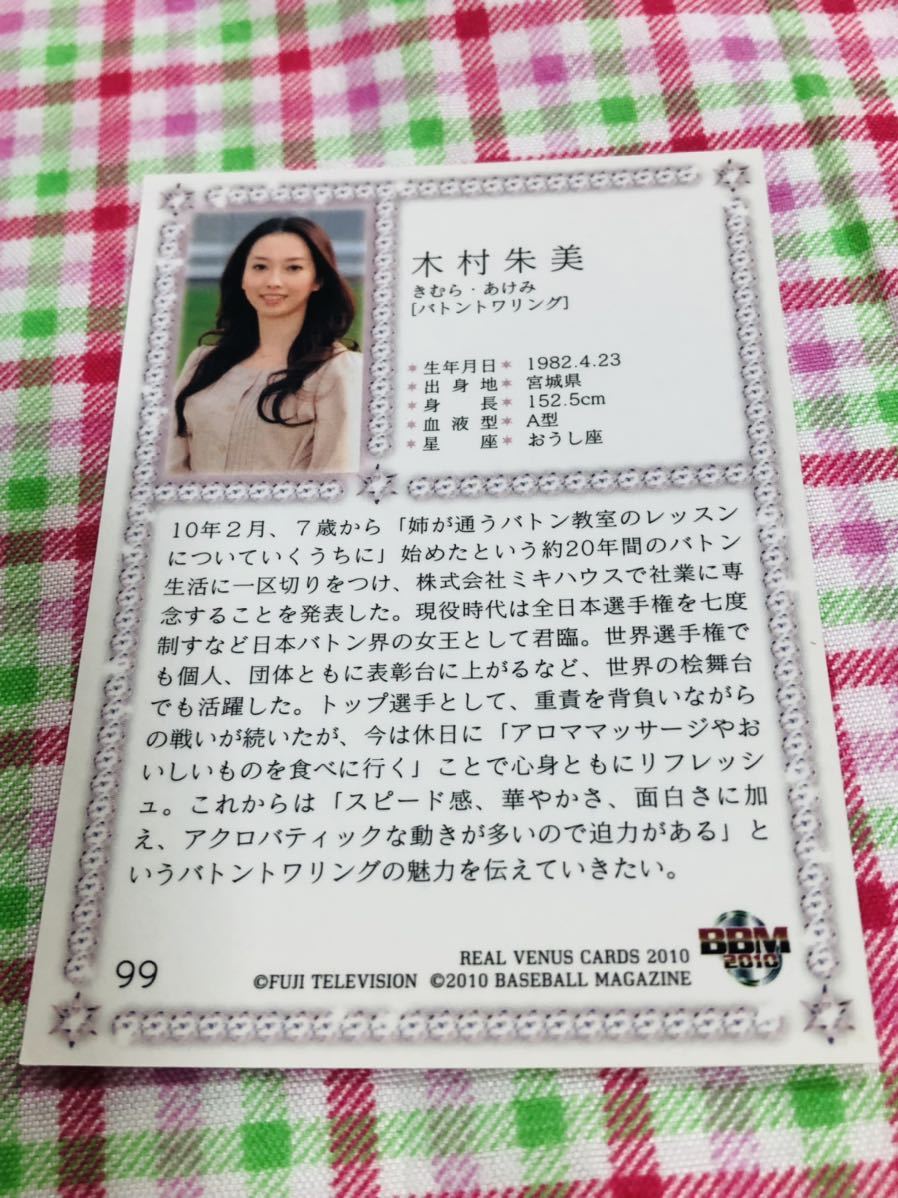 木村朱美
きむら・あけみ
[バトントワリング]
*生年月日* 1982.4.23
*出身地* 宮城県
*身長* 152.5cm
*血液型* A型
*星座* おうし座
10年2月、7歳から「姉が通うバトン教室のレッスン
についていくうちに」始めたという約20年間のバトン
生活に一区切りをつけ、株式会社ミキハウスで社業に専
念することを発表した。現役時代は全日本選手権を七度
制すなど日本バトン界の女王として君臨。世界選手権で
も個人、団体ともに表彰台に上がるなど、世界の桧舞台
でも活躍した。トップ選手として、重責を背負いながら
の戦いが続いたが、今は休日に「アロママッサージやお
いしいものを食べに行く」ことで心身ともにリフレッシ
ュ。これからは「スピード感、華やかさ、面白さに加
え、アクロバティックな動きが多いので迫力がある」と
いうバトントワリングの魅力を伝えていきたい。
99
REAL VENUS CARDS 2010
©FUJI TELEVISION ©2010 BASEBALL MAGAZINE
BBM
2010